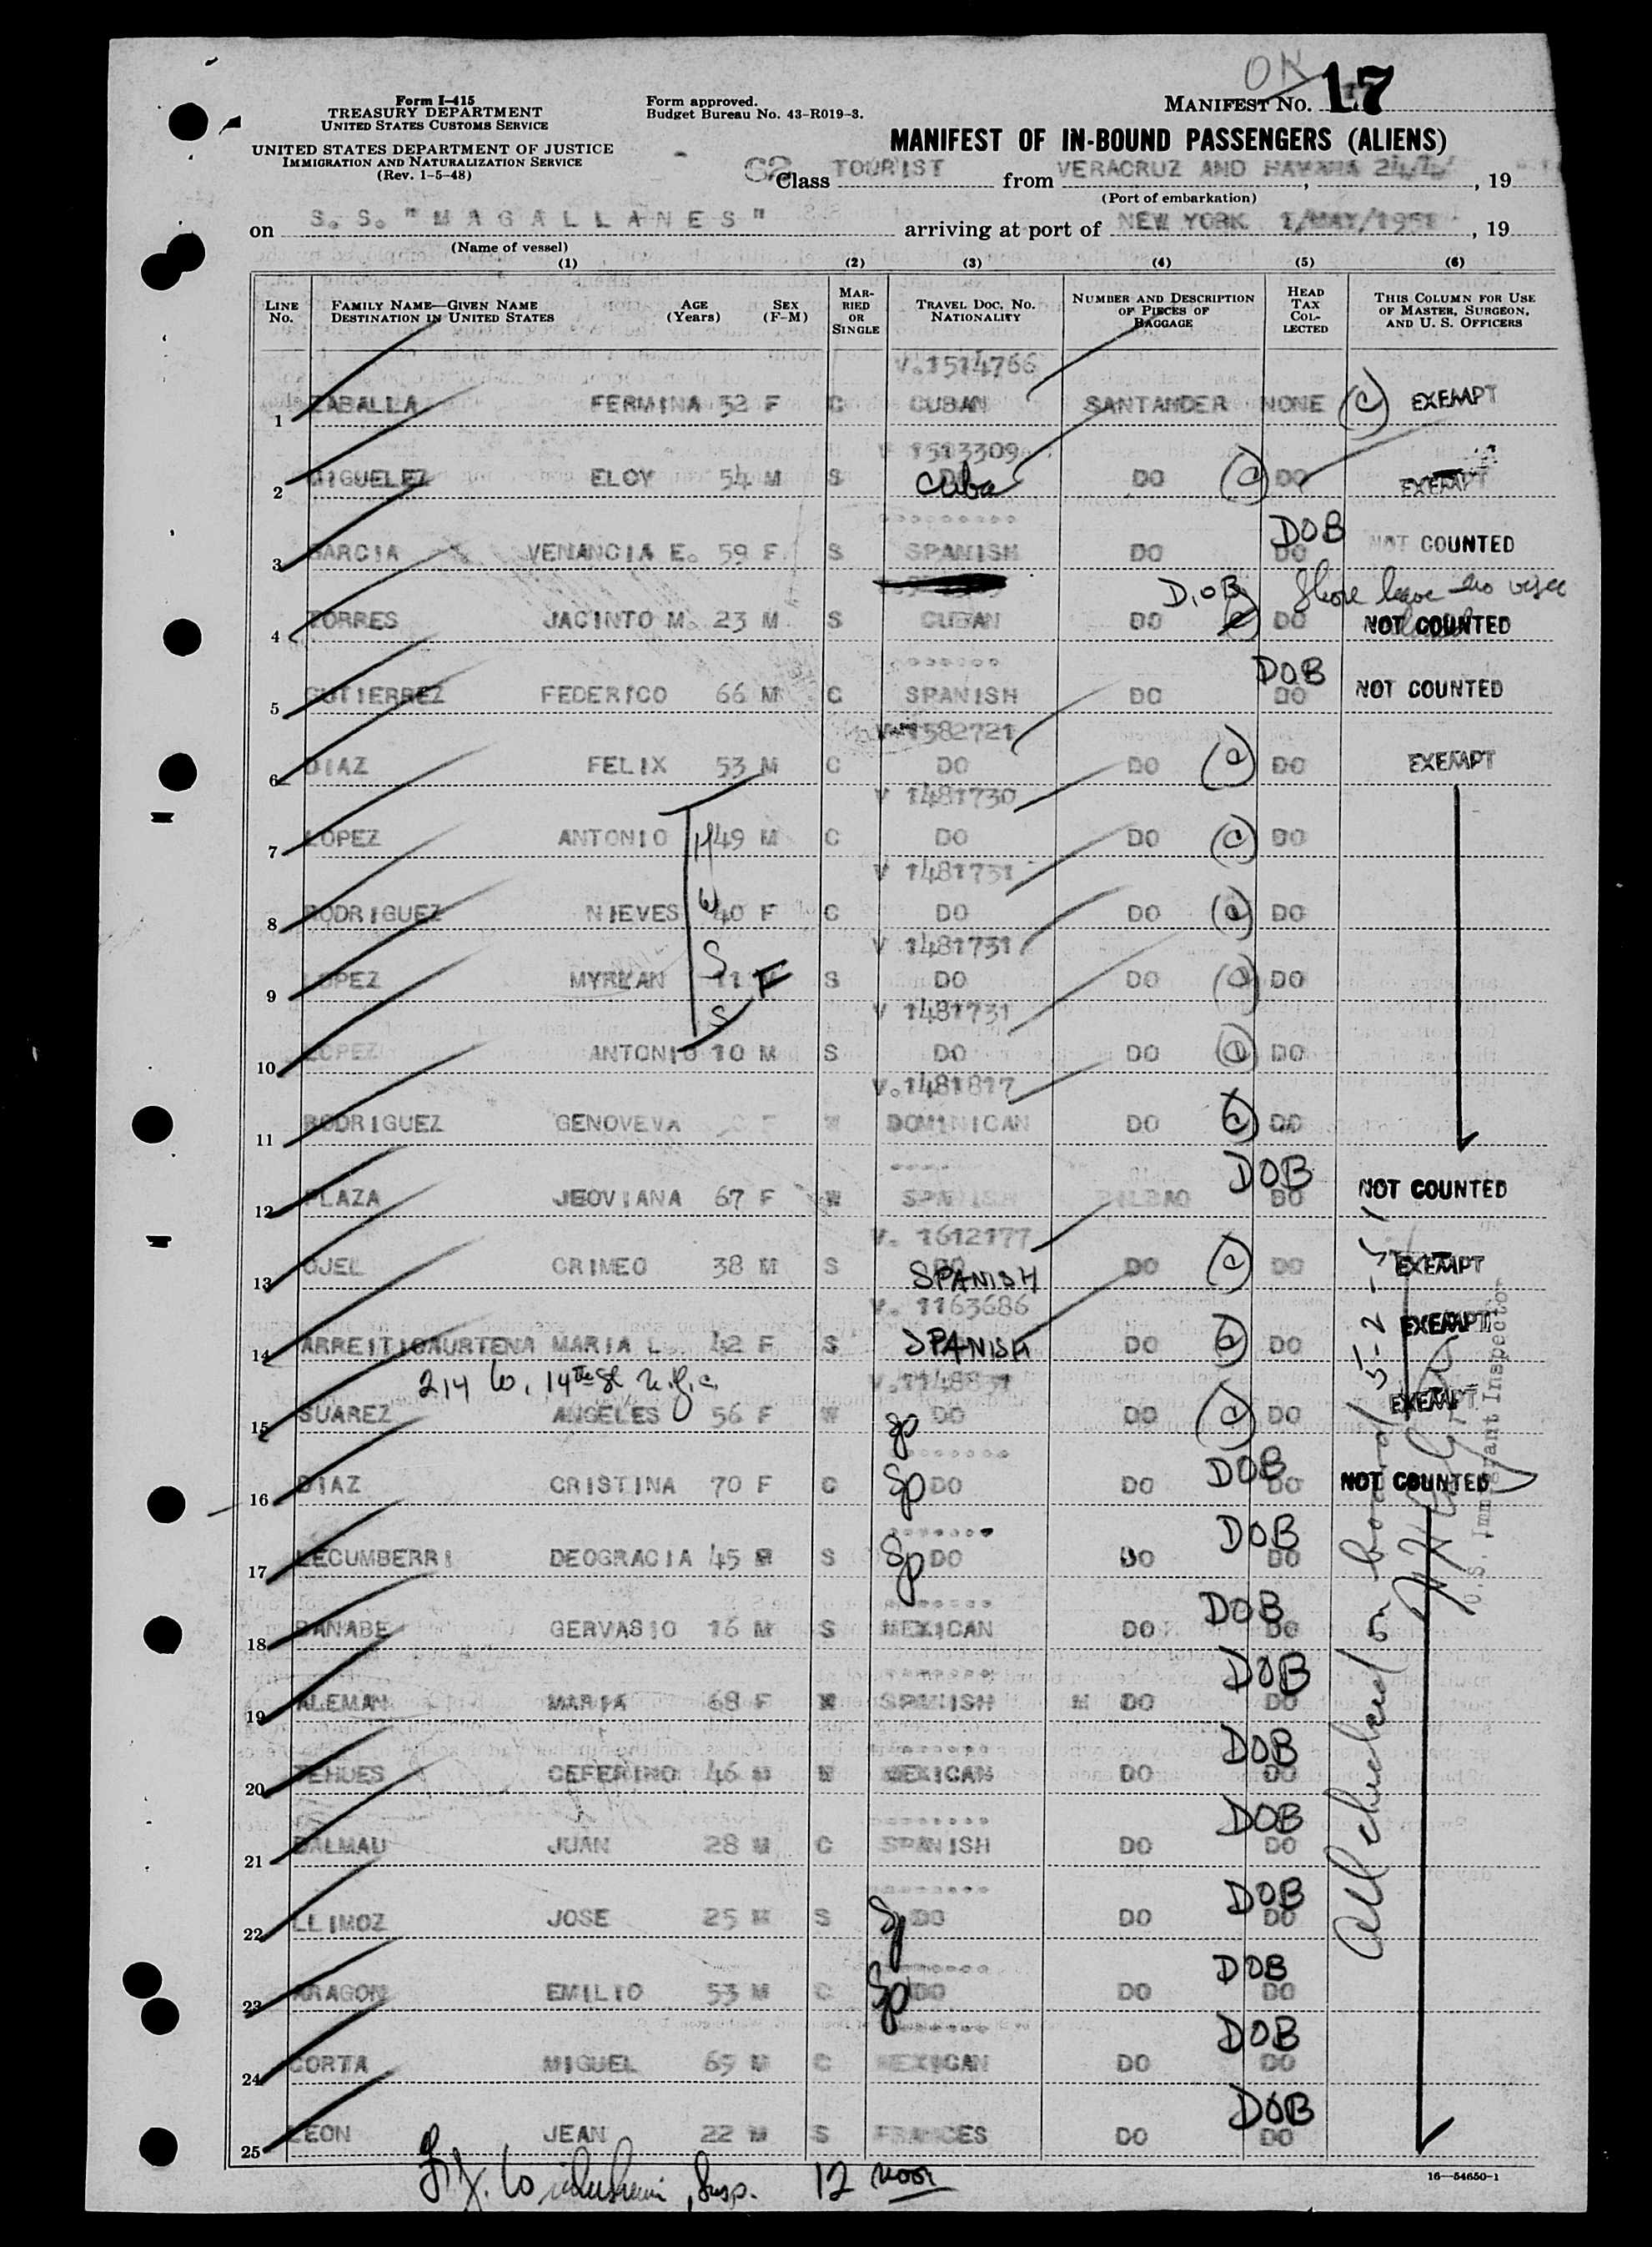 OK
Form I-415
TREASURY DEPARTMENT
UNITED STATES CUSTOMS SERVICE
UNITED STATES DEPARTMENT OF JUSTICE
IMMIGRATION AND NATURALIZATION SERVICE
(Rev. 1-5-48)
Form approved.
Budget Bureau No. 43-R019-3.
MANIFEST NO. 17
MANIFEST OF IN-BOUND PASSENGERS (ALIENS)
62 Class TOURIST from VERACRUZ AND HAVANA , 19
(Port of embarkation)
on S. S. "MAGALLANES" arriving at port of NEW YORK 1/MAY/1951 , 19
(Name of vessel)
(1) (2) (3) (4) (5) (6)
LINE No. FAMILY NAME—GIVEN NAME DESTINATION IN UNITED STATES AGE (Years) SEX (F-M) MARRIED OR SINGLE TRAVEL DOC. NO. NATIONALITY NUMBER AND DESCRIPTION OF PIECES OF BAGGAGE HEAD TAX COLLECTED THIS COLUMN FOR USE OF MASTER, SURGEON, AND U. S. OFFICERS
V.1514766
1 ZABALLA FERMINA 52 F C CUBAN SANTANDER NONE (C) EXEMPT
V 1513309
2 MIGUELEZ ELOY 54 M S Cuba DO (C) DO EXEMPT
DOB
3 GARCIA VENANCIA E. 59 F S SPANISH DO DO NOT COUNTED
D.OB Shore leave no visa
4 TORRES JACINTO M. 23 M S CUBAN DO DO NOT COUNTED
DOB
5 GUTIERREZ FEDERICO 66 M C SPANISH DO DO NOT COUNTED
V 1582721
6 DIAZ FELIX 53 M C DO DO (C) DO EXEMPT
V 1481730
7 LOPEZ ANTONIO H 49 M C DO DO (C) DO
V 1481731
8 RODRIGUEZ NIEVES W 40 F C DO DO (C) DO
V 1481731
9 LOPEZ MYRIAN S 11 F S DO DO (C) DO
V 1481731
10 LOPEZ ANTONIO S 10 M S DO DO (C) DO
V.1481817
11 RODRIGUEZ GENOVEVA F W DOMINICAN DO (C) DO
DOB
12 PLAZA JEOVIANA 67 F W SPANISH BILBAO DO NOT COUNTED
V. 1612177
13 OJEL CRIMEO 38 M S SPANISH DO (C) DO EXEMPT
V. 1163686
14 ARREITIGAURTENA MARIA L. 42 F S SPANISH DO (C) DO EXEMPT
214 W. 14th St N.Y.C. V.1148831
15 SUAREZ ANGELES 56 F W Sp DO DO (C) DO EXEMPT
16 DIAZ CRISTINA 70 F C Sp DO DO DOB DO NOT COUNTED
DOB
17 LECUMBERRI DEOGRACIA 45 M S Sp DO DO DO
DOB
18 BANABE GERVASIO 16 M S MEXICAN DO DO
DOB
19 ALEMAN MARIA 68 F W SPANISH DO DO
DOB
20 TEHUES CEFERINO 46 M MEXICAN DO DO
DOB
21 DALMAU JUAN 28 M C SPANISH DO DO
DOB
22 LLIMOZ JOSE 25 M S Sp DO DO DO
DOB
23 ARAGON EMILIO 53 M C Sp DO DO DO
DOB
24 CORTA MIGUEL MEXICAN DO DO
DOB
25 LEON JEAN 22 M S FRANCES DO DO
All checked on board 5-2-51
U.S. Immigrant Inspector
Insp. 12 noon
16—54650-1